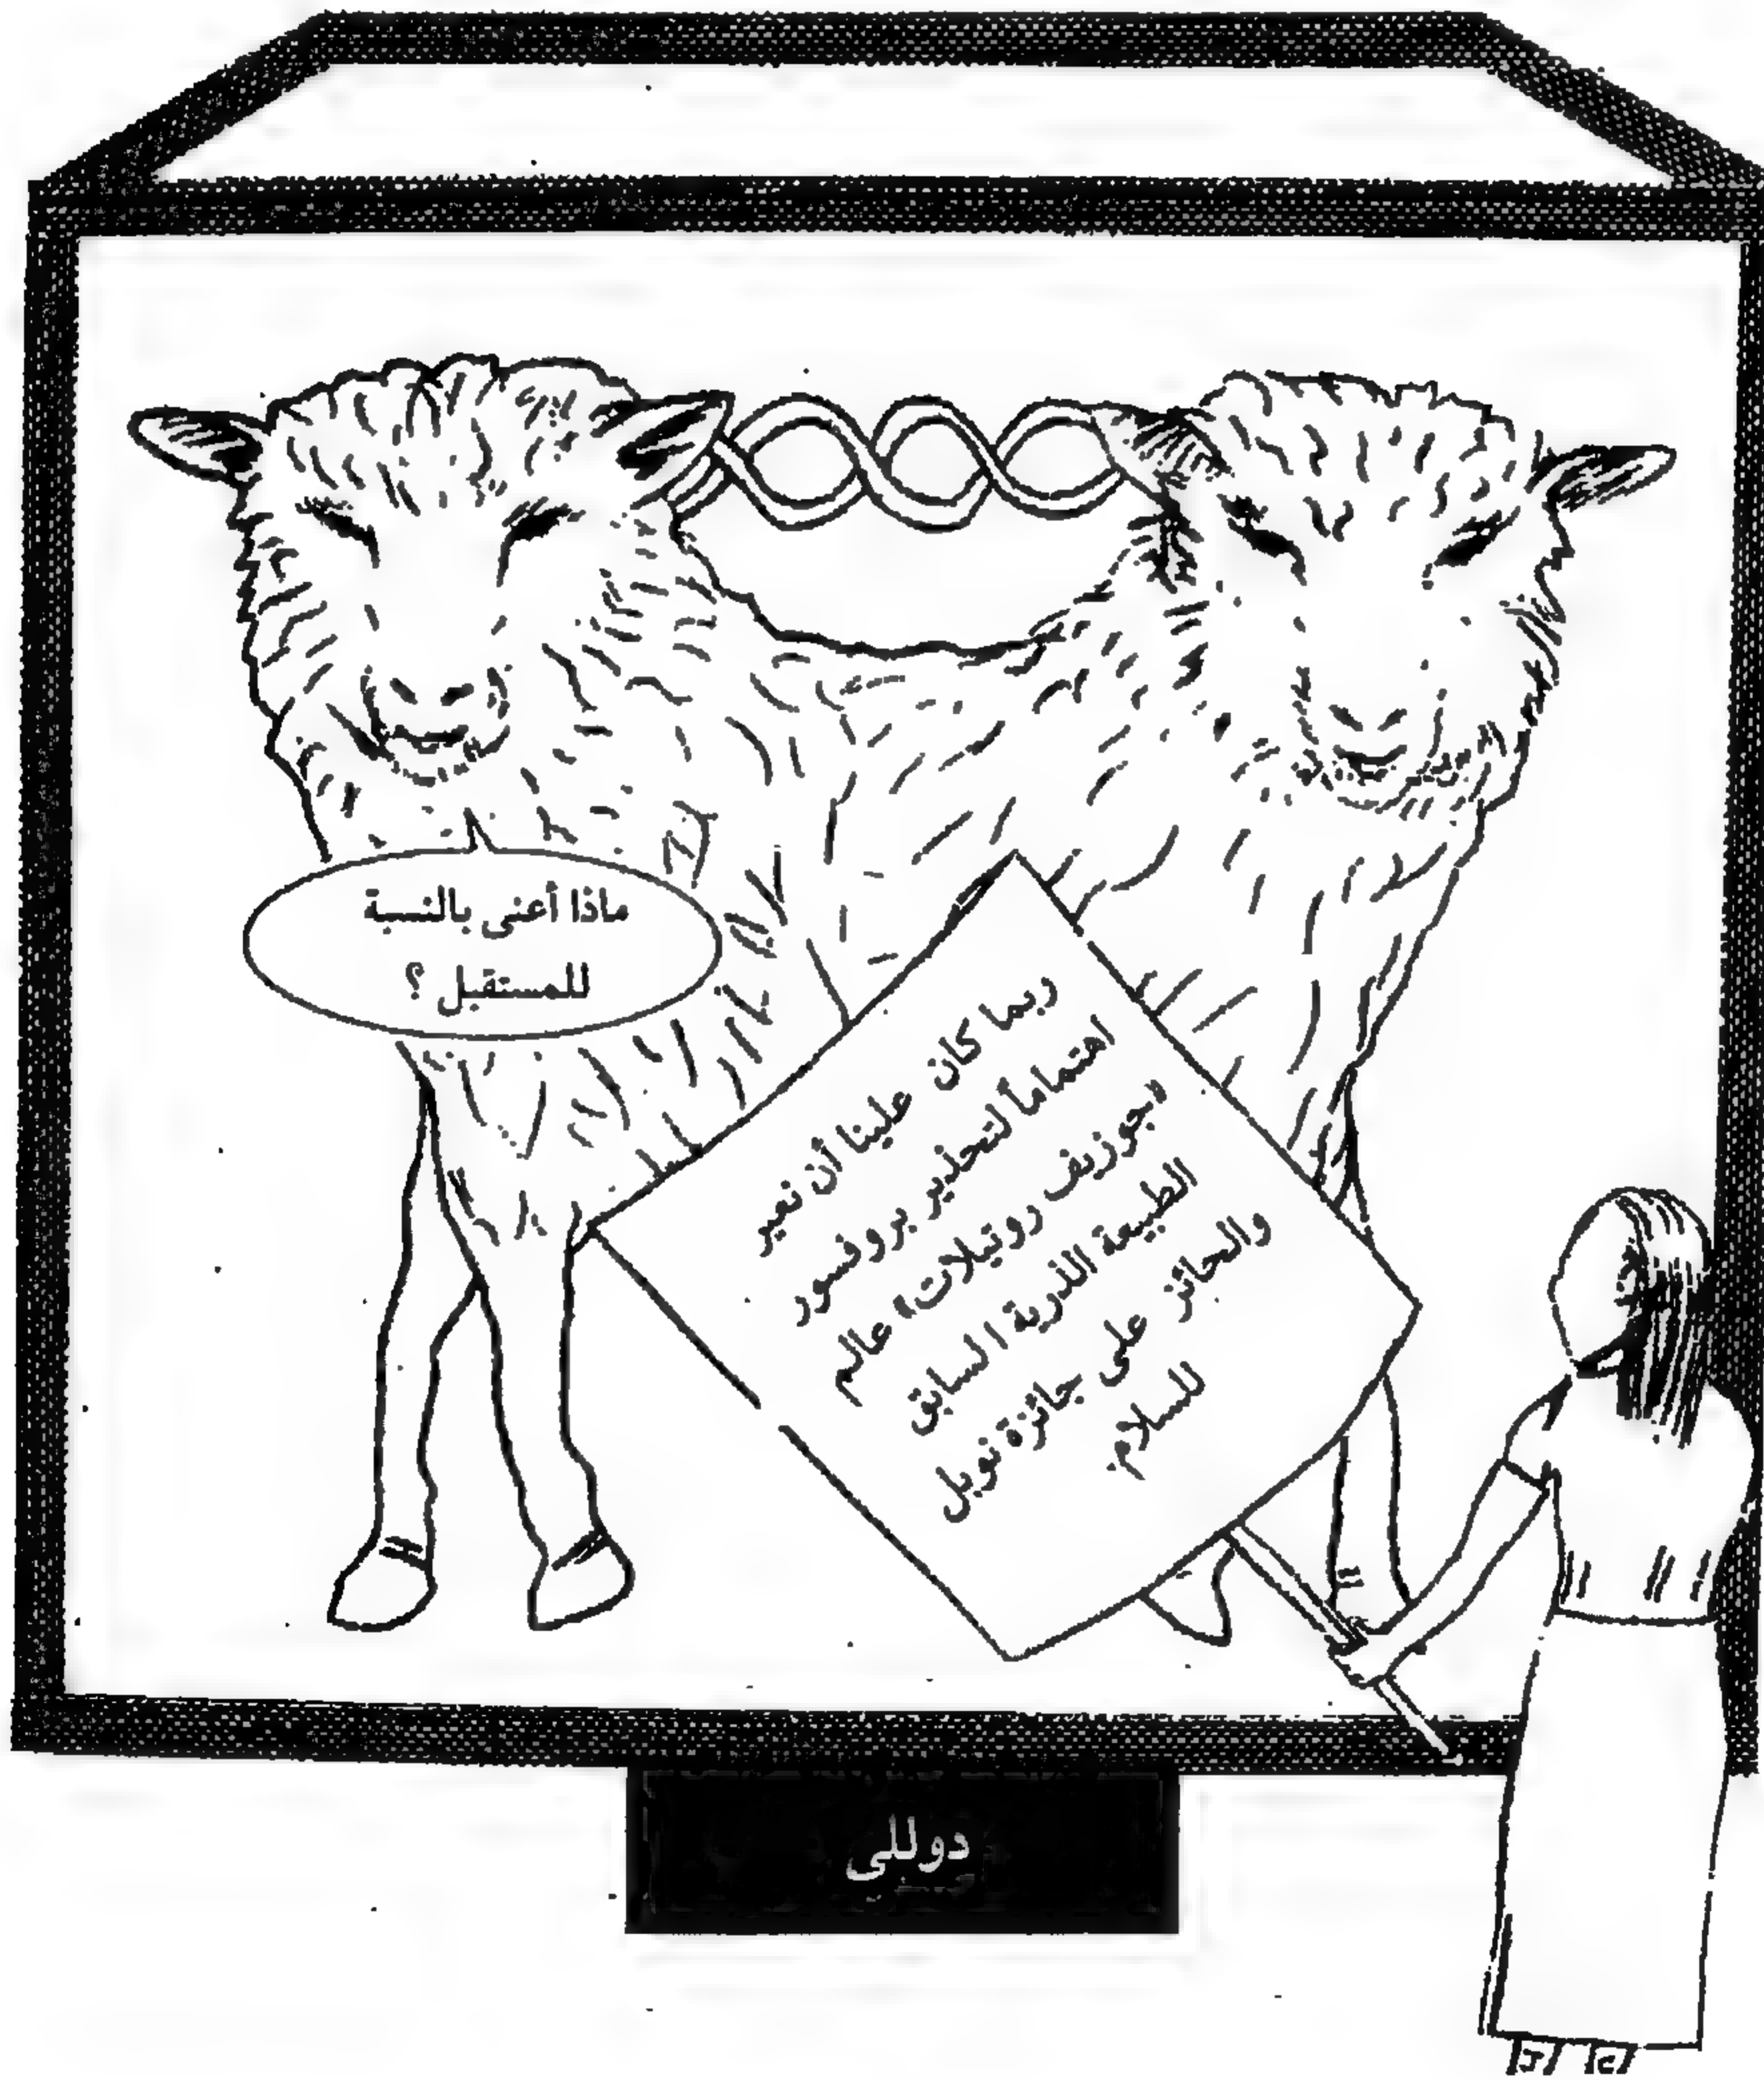 ماذا أعنى بالنسبة
للمستقبل ؟
ربما كان علينا أن نعير
اهتماماً لتحذير بروفسور
«جوزيف روتيلات» عالم
الطبيعة الذرية السابق
والحائز على جائزة نوبل
للسلام.
دوللي